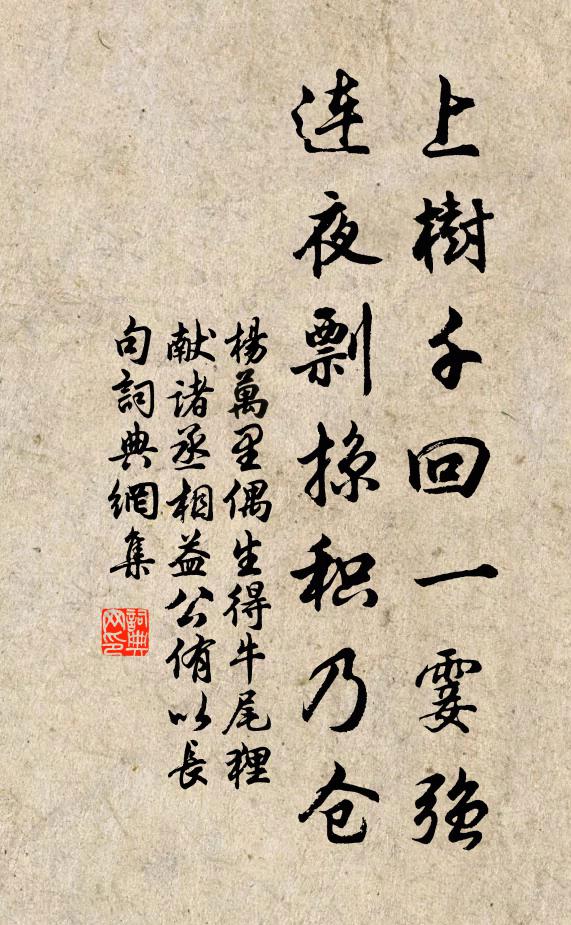 上樹千回一霎強
连夜剽掠积乃仓
楊萬里偶生得牛尾狸
献諸丞相益公侑以長
句詞典網集
詞典网印